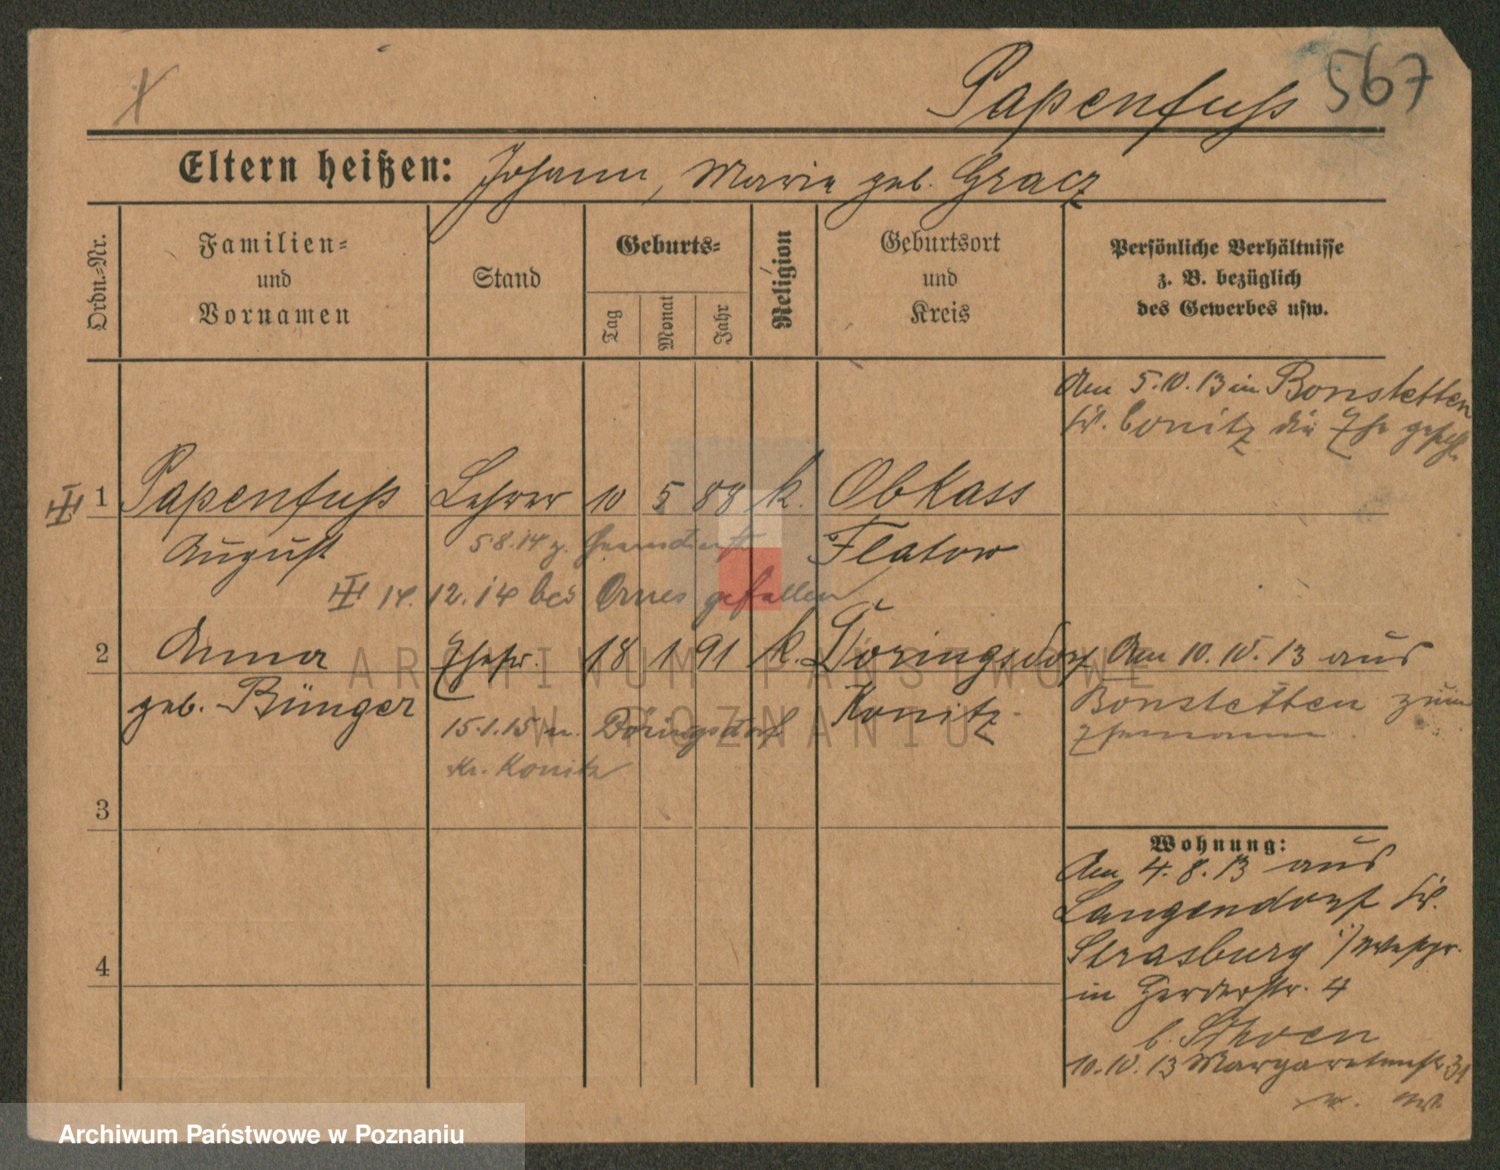 Papenfuß 567
Eltern heißen: Johann, Marie geb. Gracz
Ordn.-Nr.
Familien-
und
Vornamen
Stand
Geburts-
Tag
Monat
Jahr
Religion
Geburtsort
und
Kreis
Persönliche Verhältnisse
z. B. bezüglich
des Gewerbes usw.
Am 5.10.13 in Bonstetten
Kr. Conitz die Ehe geschl.
1 Papenfuß Lehrer 10 5 88 k. Obkass
August Flatow
5.8.14 z.
14.12.14 bei gefallen
2 Anna Ehefr. 18 1 91 k. Döringsdorf
geb. Bünger Konitz
15.1.15 n. Döringsdorf
Kr. Konitz
Am 10.10.13 aus
Bonstetten zum
Ehemann
3
4
Wohnung:
Am 4.8.13 aus
Langendorf Kr.
Strasburg i/Westpr.
in Herderstr. 4
b. Sthoen
10.10.13 Margaretenstr 31
ARCHIWUM PAŃSTWOWE
W POZNANIU
Archiwum Państwowe w Poznaniu